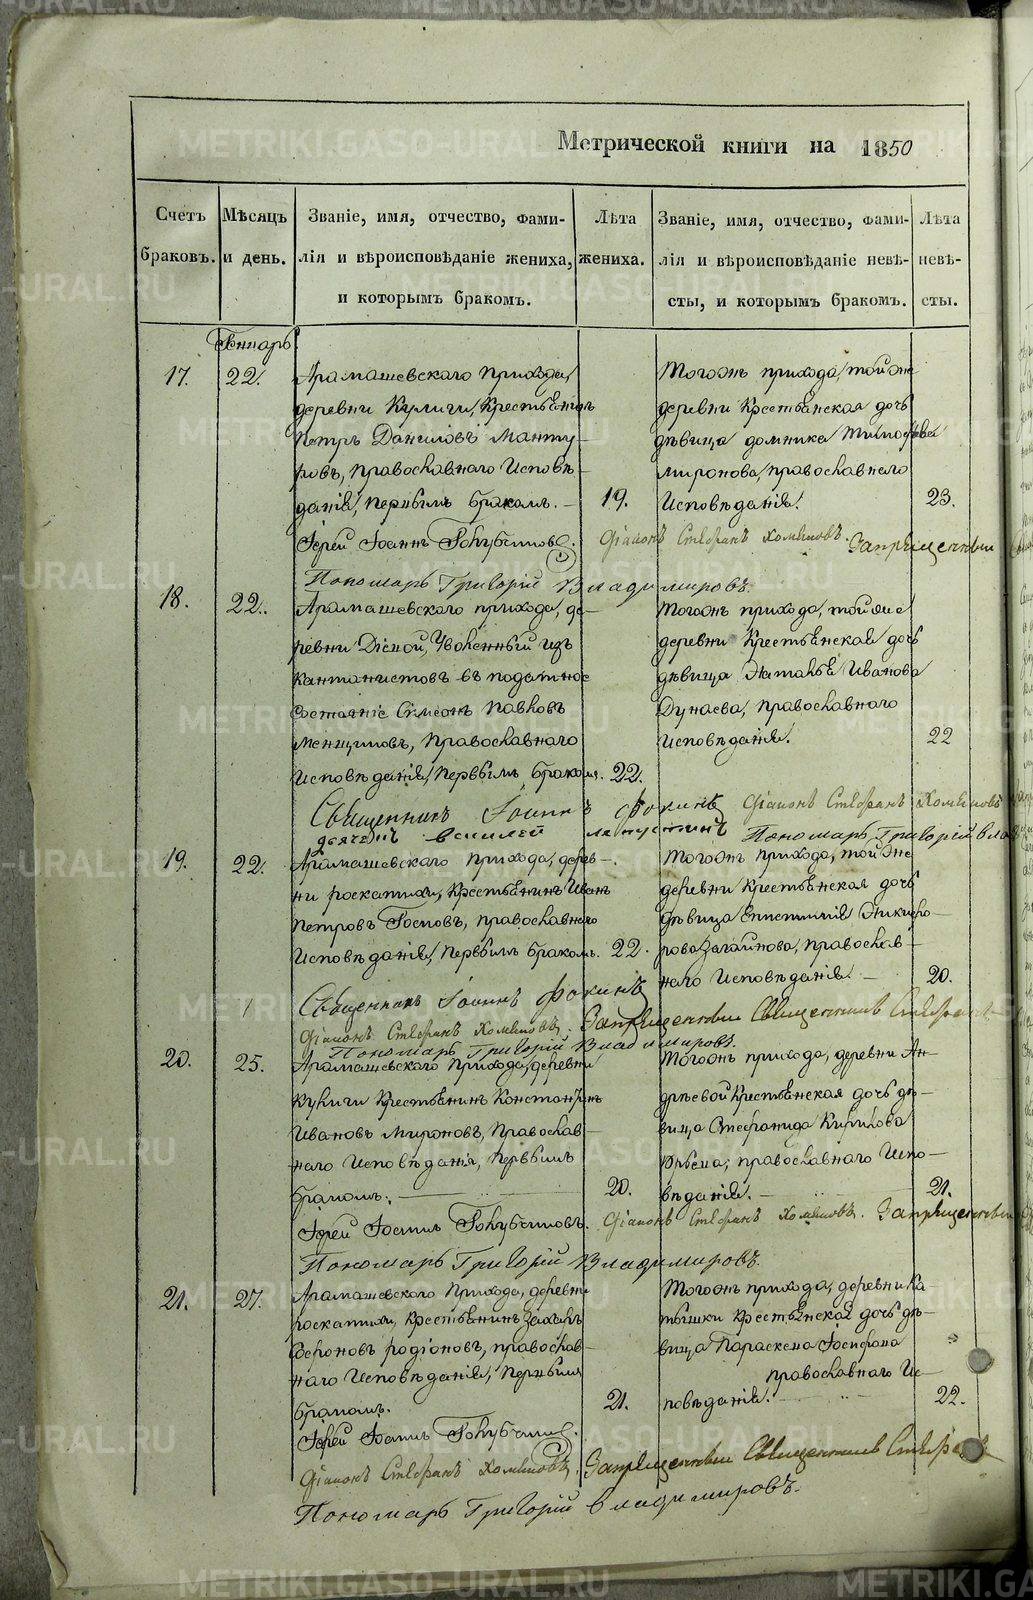 Метрической книги на 1850
Счетъ браковъ.
Мѣсяцъ и день.
Званіе, имя, отчество, фами-
лія и вѣроисповѣданіе жениха,
и которымъ бракомъ.
Лѣта жениха.
Званіе, имя, отчество, фами-
лія и вѣроисповѣданіе невѣ-
сты, и которымъ бракомъ.
Лѣта невѣ-
сты.
Генварь
17.
22.
Арамашевскаго прихода,
деревни Кулиги, Крестьянинъ
Петръ Даниловъ Манту-
ровъ, православнаго Исповѣ-
данія, первымъ бракомъ.
19.
Тогожъ прихода, той же
деревни Крестьянская дочь
дѣвица Домника Тимофѣева
Миронова, православнаго
Исповѣданія.
23.
Іерей Іоаннъ Голубчиковъ. Діаконъ Стефанъ Хомяковъ. Запрещенный
Пономарь Григорій Владимировъ.
18.
22.
Арамашевскаго прихода, де-
ревни Уволенный изъ
кантонистовъ въ податное
состояніе Симеонъ Павловъ
Меншиковъ, Православнаго
Исповѣданія, Первымъ бракомъ.
22.
Тогожъ прихода, той же
деревни Крестьянская дочь
дѣвица Наталья Иванова
Дунаева, православнаго
исповѣданія.
22
Священникъ Іоаннъ Фокинъ Діаконъ Стефанъ Хомяковъ
дьячекъ Василей Пономарь Григорій Влад
19.
22.
Арамашевскаго прихода, дерев-
ни роскатихи, Крестьянинъ Иванъ
Петровъ православнаго
Исповѣданія, Первымъ бракомъ.
22.
Тогожъ прихода, той же
деревни Крестьянская дочь
дѣвица Епистимія Никифо-
рова Загайнова, православ-
наго Исповѣданія.
20.
Священникъ Іоаннъ Фокинъ
Діаконъ Стефанъ Хомяковъ. Запрещенный Священникъ Стефанъ
Пономарь Григорій Владимировъ.
20.
25.
Арамашевскаго Прихода, деревни
Кулиги Крестьянинъ Константинъ
Ивановъ Мироновъ, Православ-
наго Исповѣданія, первымъ
бракомъ.
20.
Тогожъ прихода, деревни Ан-
дрѣевой Крестьянская дочь дѣ-
вица Стефанида Кирилова
православнаго Испо-
вѣданія.
21.
Іерей Іоаннъ Голубчиковъ. Діаконъ Стефанъ Хомяковъ. Запрещенный
Пономарь Григорій Владимировъ.
21.
27.
Арамашевскаго Прихода, деревни
роскатихи, Крестьянинъ Захаръ
Софоновъ родіоновъ, православ-
наго Исповѣданія, Первымъ
бракомъ.
21.
Тогожъ прихода, деревни Ка-
тышки Крестьянская дочь дѣ-
вица Параскева Іосифова
православнаго Ис-
повѣданія.
22.
Іерей Іоаннъ Голубчиковъ.
Діаконъ Стефанъ Хомяковъ. Запрещенный Священникъ Стефанъ
Пономарь Григорій Владимировъ.
METRIKI.GASO-URAL.RU